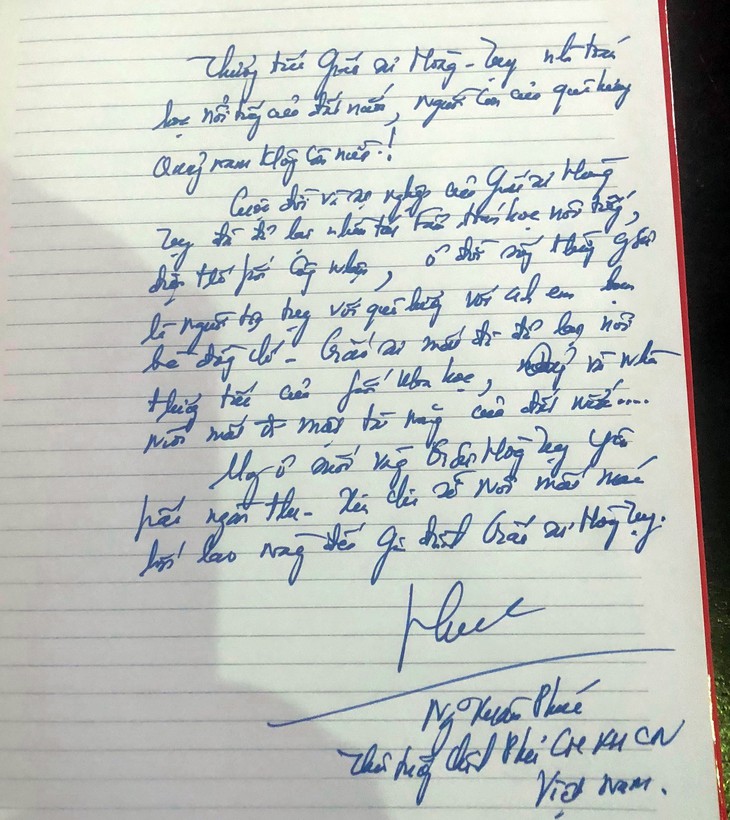 Thương tiếc Giáo sư Hoàng Tụy nhà toán
học nổi tiếng của đất nước, người con của quê hương
Quảng Nam không còn nữa!
Cuộc đời và sự nghiệp của Giáo sư Hoàng
Tụy đã để lại nhiều toán học nổi tiếng,
thế giới công nhận, ô đời sống thường
là người với quê hương với anh em bạn
bè đồng chí - Giáo sư mất đi để lại nỗi
thương tiếc của giới khoa học,
nước mất đi một tài năng của đất nước....
Mong ô mãi Giáo sư Hoàng Tụy yên
nghỉ ngàn thu - Xin chia sẻ nỗi mất mát
lớn lao này đến gia đình Giáo sư Hoàng Tụy.
Phuc
Ng Xuân Phúc
Thủ tướng Chính Phủ CHXHCN
Việt Nam.